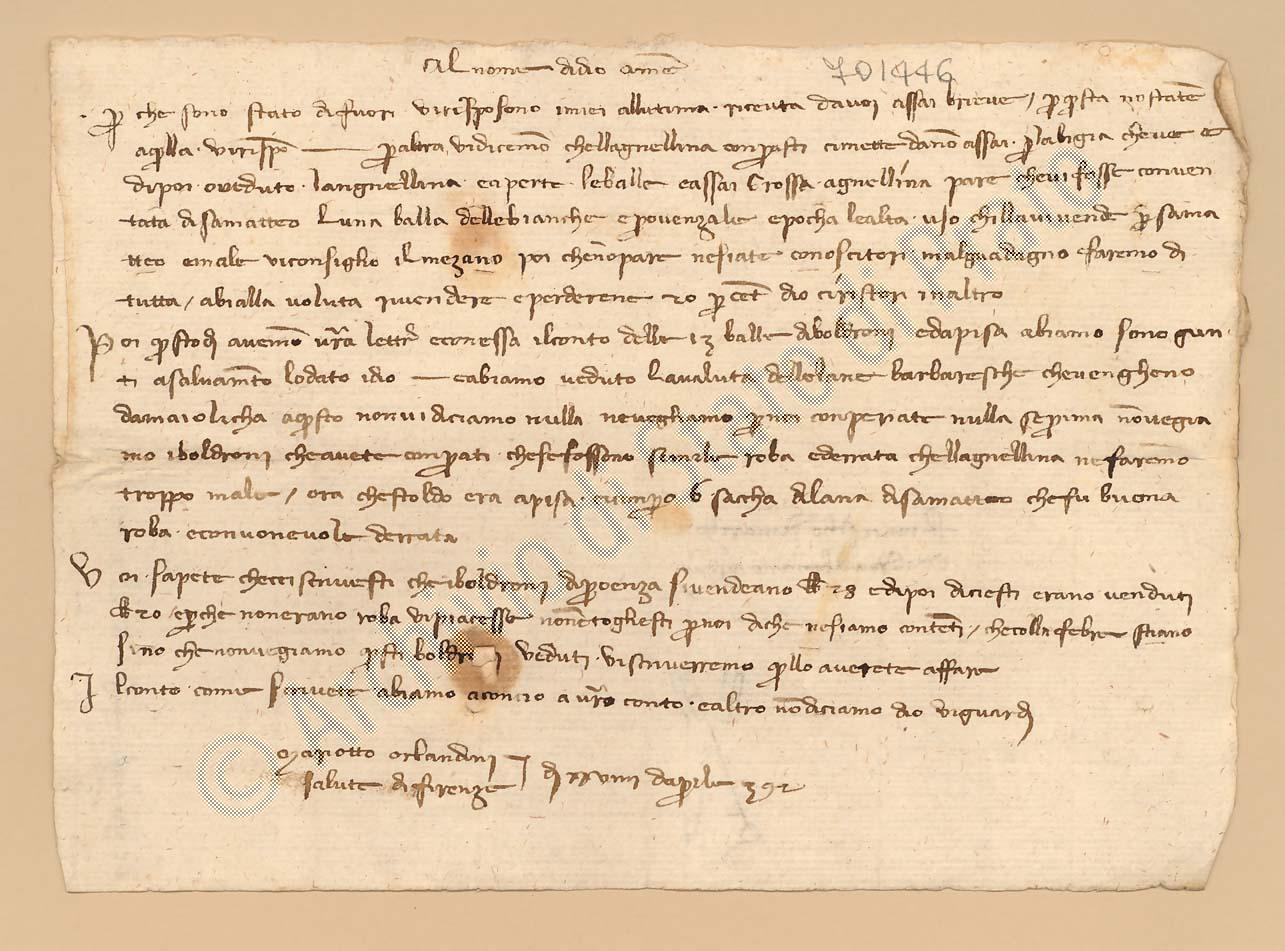 Al nome didio amē
701446
p̄ che sono stato difuori virisposono imiei allutima · riceuta davoi assai brieve / p̄ q̄sta nostatē
aq̄lla · virispō — p̄ altra vidicemō chellagnellina conp̄asti cimette danō assai · p̄ labigia chēve e
dipoi oveduto · langnellina eaperte · leballe eassai Grossa · agnellina pare chevi fosse conven
tata di samatteo Luna balla dellebianche e povenzale e pocha lealta · uso chillavivende p̄ sama
tteo emale viconsiglio ilmezano poi chenōpare nesiate conoscitori malguadagno faremo di
tutta / abialla voluta rivendere eperderene 20 p̄ cēt dio ciristori inaltro
Poi q̄sto dì avemō vr̄a letter̄ econessa ilconto delle 13 balle diboldroni edapisa abiamo sono giun
ti asalvamēto lodato idio — eabiamo veduto Lavaluta dellelane barbaresche chevengheno
damaiolicha aq̄sto nonvidiciamo nulla nevogliamo p̄ noi conperiate nulla sep̄ima nōvegia
mo iboldroni cheavete conp̄ati chesefossono simile roba ederrata chellagnellina nefaremō
troppo male / ora chestoldo era apisa · cionp̄o 6 saccha dilana disamatteo chefu buona
roba · econvonevole derrata
Voi · sapete checci scrivesti che iboldroni dip̄oenza sivendeano lb 23 edapoi diciesti erano venduti
lb 20 / ep̄che nonerano roba vipiacesse nonētogliesti p̄ noi diche nesiamo contēti / checolla febre stiano
sino che nonvegiamo q̄sti boldroni veduti · viscriverremo q̄llo averete affare
Ilconto · come scrivete abiamo aconcio a vr̄o conto · ealtro nōdiciamo dio viguardi
Mariotto orlandini
salute difirenze
dì xxviiii dap̄ile 392
© Archivio di Stato di Prato